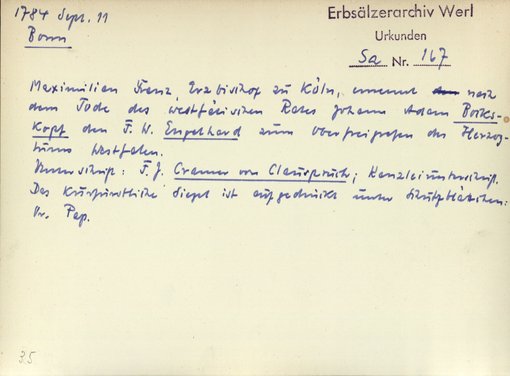 1784 Sept. 11
Bonn
Erbsälzerarchiv Werl
Urkunden
Sa Nr. 167
Maximilian Franz, Erzbischof zu Köln, ernennt nach
dem Tode des westfälischen Rates Johann Adam Bocks-
kopf den F. W. Engelhard zum Oberfreigrafen des Herzog-
tums Westfalen.
Unterschrift: F. J. Cramer von Clauspruch; Kanzleiunterschrift.
Das kurfürstliche Siegel ist aufgedrückt unter Schutzblättchen.
Or. Pap.
35